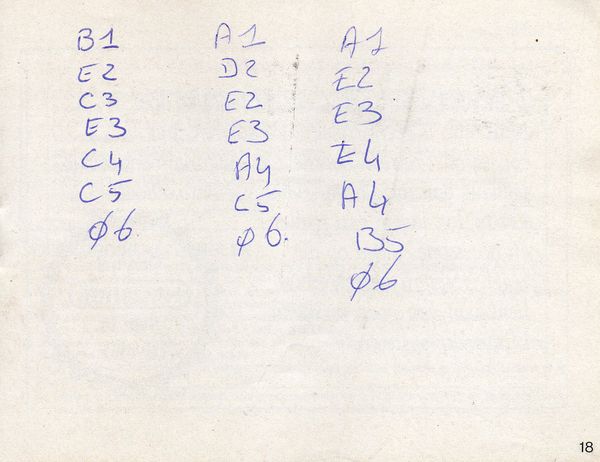 B1
E2
C3
E3
C4
C5
Ø6.
A1
D2
E2
E3
A4
C5
Ø6.
A1
E2
E3
E4
A4
B5
Ø6
18